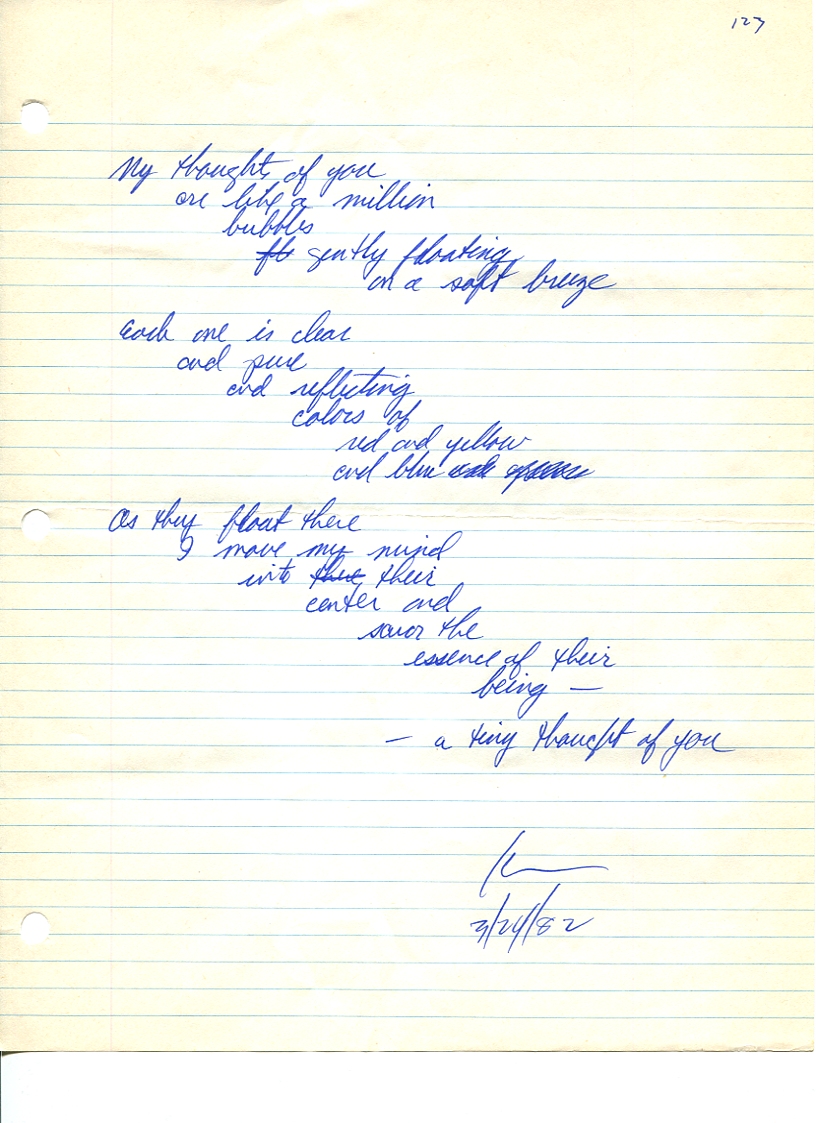 127
My thoughts of you
are like a million
bubbles
gently floating
on a soft breeze
Each one is clear
and pure
and reflecting
colors of
red and yellow
and blue
As they float there
I move my mind
into their
center and
savor the
essence of their
being —
— a tiny thought of you
3/24/82